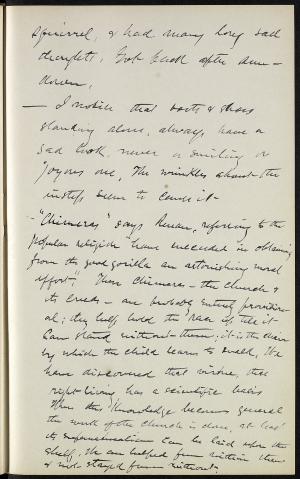 squirrel, & had many long sad
thoughts. Got back after sun-
down.
— I notice that boots & shoes
standing alone, always, have a
sad look, never a smiling or
joyous one. The wrinkles about the
instep seem to cause it —
- "Chimeras" says Renan, referring to the
popular religion "have succeeded in obtaining
from the good gorilla an astonishing moral
effort." These Chimeras — the church &
its creeds — are probably entirely provision-
al; they help hold the race up till it
can stand without them; it is the chair
by which the child learns to walk. We
have discovered that virtue, that
right living has a scientific basis
When this knowledge becomes general
the work of the church is done, at least
its supernaturalism can be laid upon the
shelf. We are helped from within then
& not stayed from without.